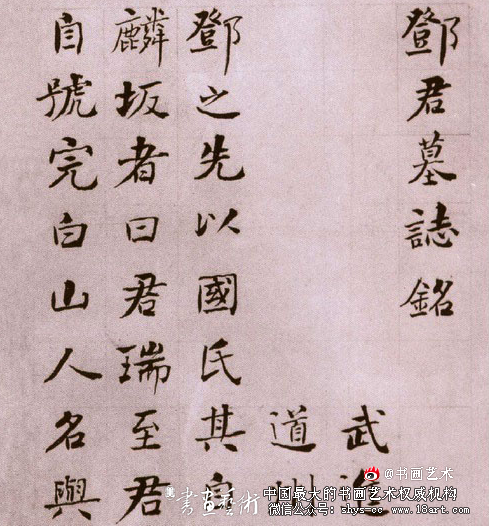 鄧君墓誌銘
武
道
鄧之先以國氏其
麟坂者曰君瑞至君
自號完白山人名與
@书画艺术
中国最大的书画艺术权威机构
微信公众号：shys-cc www.18art.com